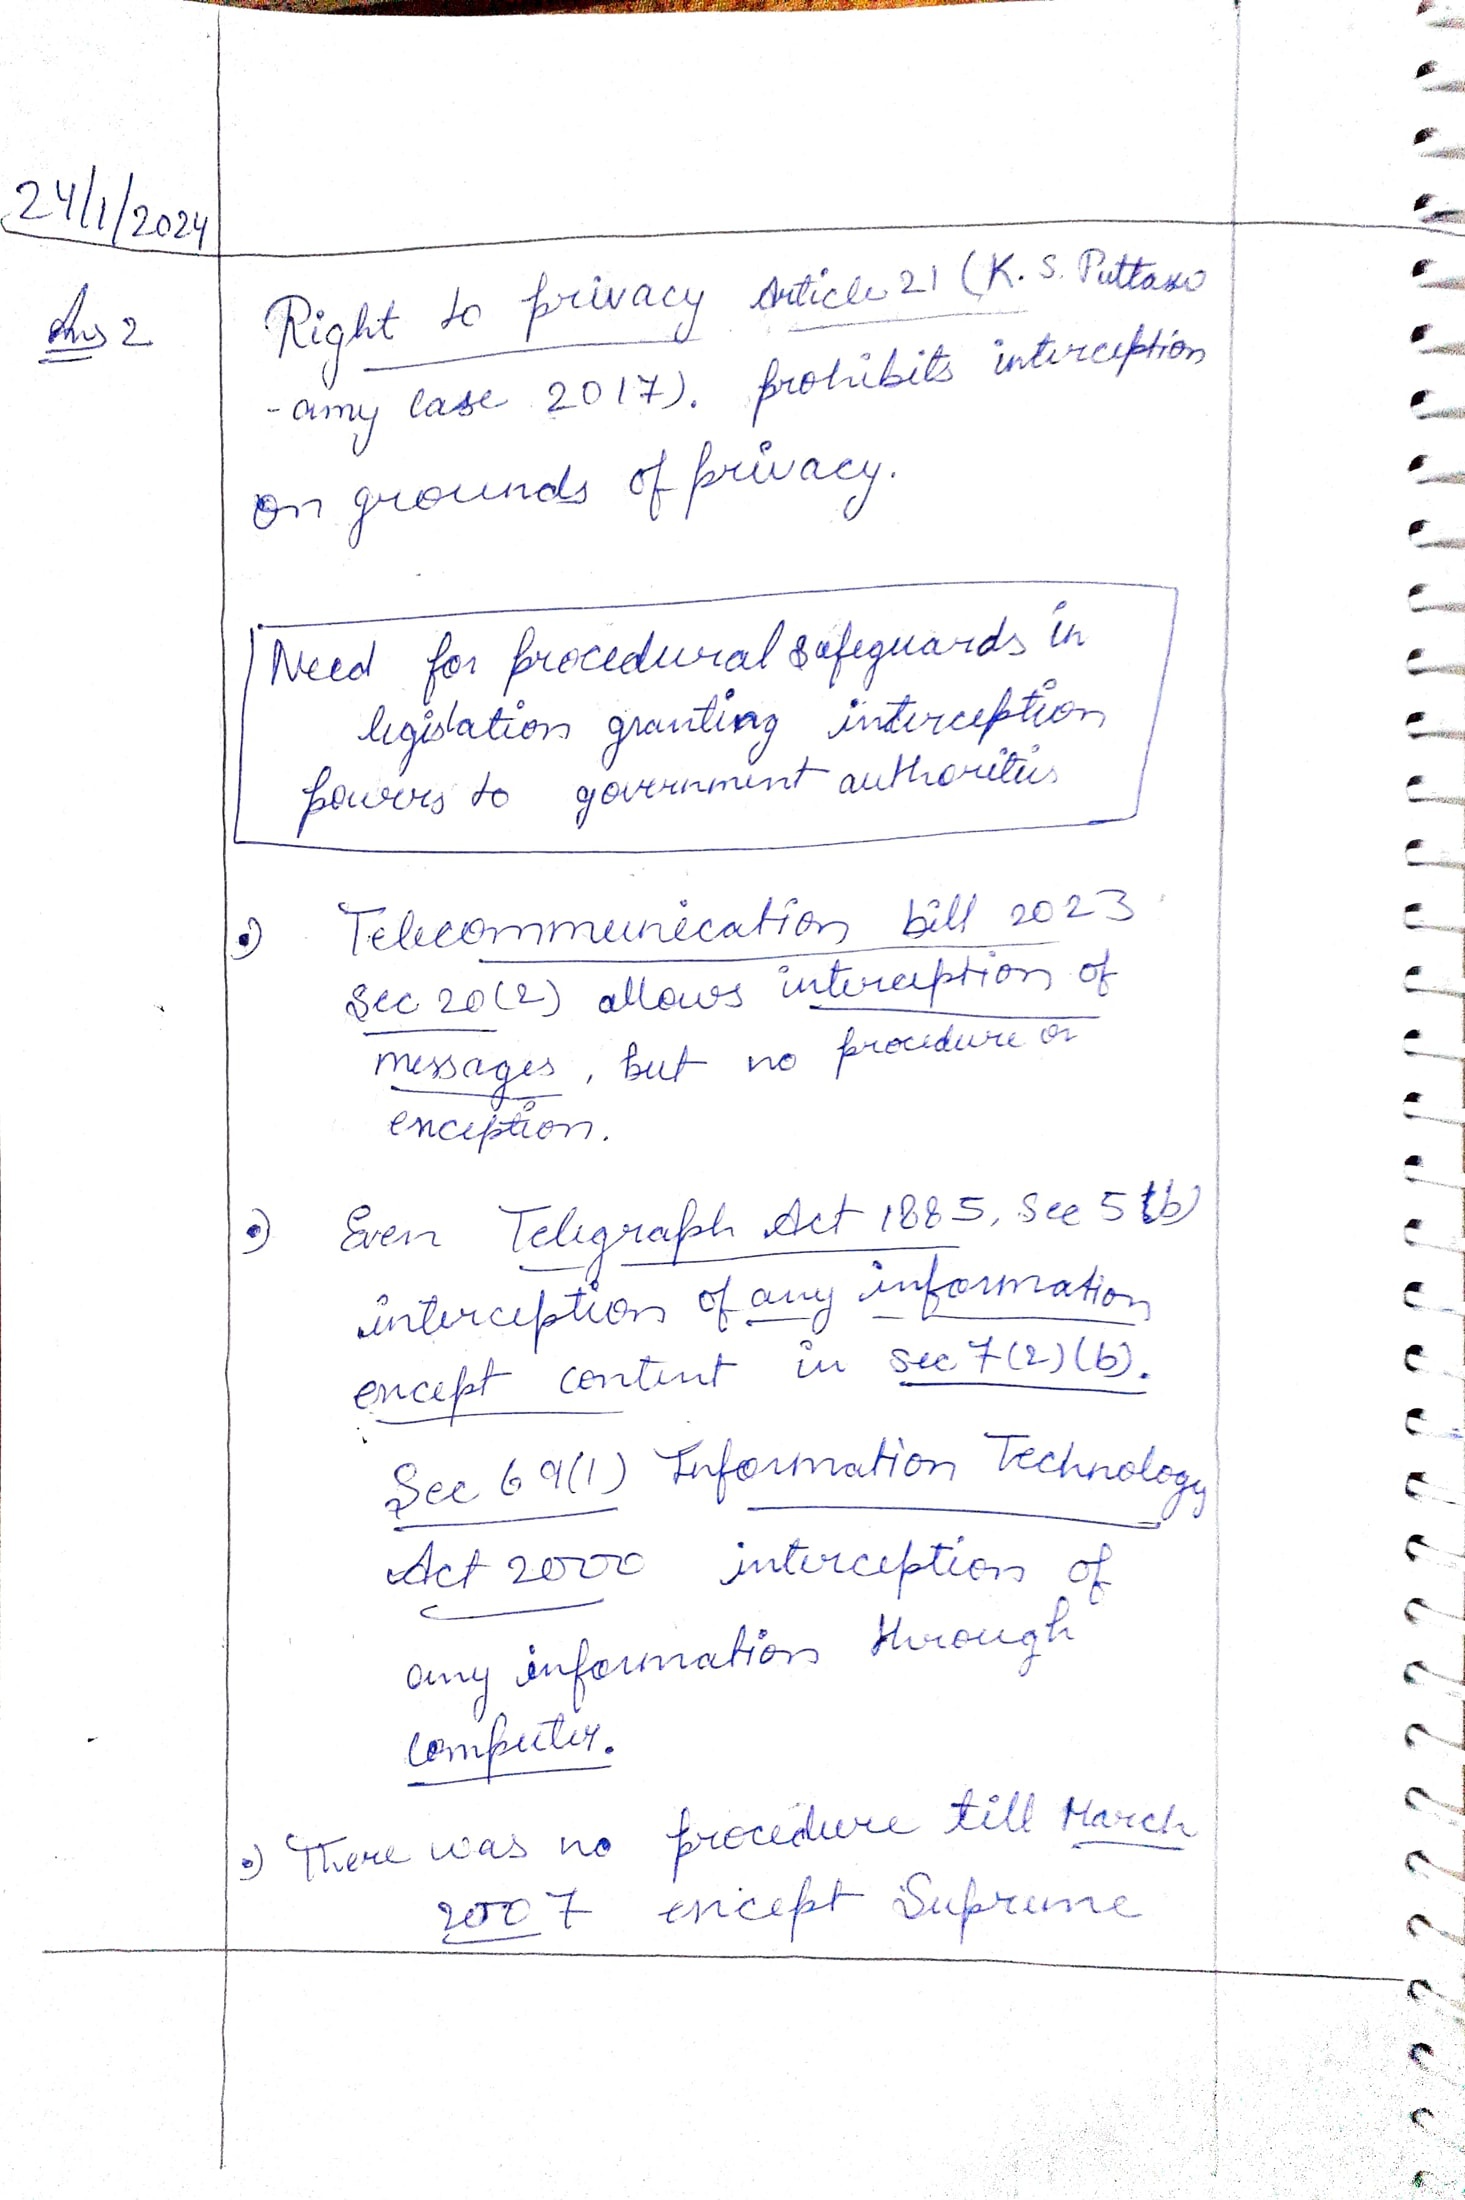 24/1/2024
Ans 2
Right to privacy Article 21 (K. S. Puttasw
-amy case 2017). prohibits interception
on grounds of privacy.
Need for procedural safeguards in
legislation granting interception
powers to government authorities
•) Telecommunication bill 2023
Sec 20(2) allows interception of
messages, but no procedure or
exception.
•) Even Telegraph Act 1885, Sec 5
interception of any information
except content in sec 7(2)(b).
Sec 69(1) Information Technology
Act 2000 interception of
any information through
computer.
•) There was no procedure till March
2007 except Supreme